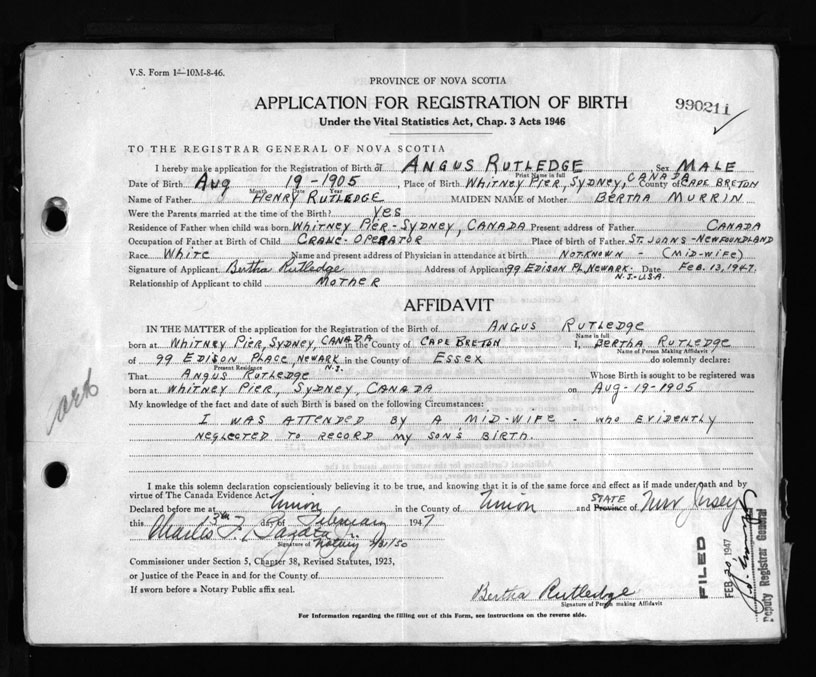 V.S. Form 1—10M-8-46.
PROVINCE OF NOVA SCOTIA
APPLICATION FOR REGISTRATION OF BIRTH
990211
Under the Vital Statistics Act, Chap. 3 Acts 1946
TO THE REGISTRAR GENERAL OF NOVA SCOTIA
I hereby make application for the Registration of Birth of ANGUS RUTLEDGE Sex MALE
Print Name in full
Date of Birth AUG 19-1905, Place of Birth WHITNEY PIER, SYDNEY, CANADA County of CAPE BRETON
Month Date Year
Name of Father HENRY RUTLEDGE MAIDEN NAME of Mother BERTHA MURRIN
Were the Parents married at the time of the Birth? YES
Residence of Father when child was born WHITNEY PIER-SYDNEY, CANADA Present address of Father CANADA
Occupation of Father at Birth of Child CRANE-OPERATOR Place of birth of Father ST. JOHNS-NEWFOUNDLAND
Race WHITE Name and present address of Physician in attendance at birth NOT-KNOWN - (MID-WIFE)
Signature of Applicant Bertha Rutledge Address of Applicant 99 EDISON PL, NEWARK- N.J.-U.S.A. Date FEB. 13, 1947.
Relationship of Applicant to child MOTHER
AFFIDAVIT
IN THE MATTER of the application for the Registration of the Birth of ANGUS RUTLEDGE
Name in full
born at WHITNEY PIER, SYDNEY, CANADA in the County of CAPE BRETON I, BERTHA RUTLEDGE
Name of Person Making Affidavit
of 99 EDISON PLACE NEWARK N.J. in the County of ESSEX do solemnly declare:
Present Residence
That ANGUS RUTLEDGE Whose Birth is sought to be registered was
born at WHITNEY PIER, SYDNEY, CANADA on AUG-19-1905
My knowledge of the fact and date of such Birth is based on the following Circumstances:
I WAS ATTENDED BY A MID-WIFE - WHO EVIDENTLY
NEGLECTED TO RECORD MY SON'S BIRTH.
I make this solemn declaration conscientiously believing it to be true, and knowing that it is of the same force and effect as if made under oath and by
virtue of The Canada Evidence Act.
Declared before me at Union in the County of Union and STATE Province of New Jersey
this 13th day of February 1947
Charles F.
Signature of Notary
Commissioner under Section 5, Chapter 38, Revised Statutes, 1923,
or Justice of the Peace in and for the County of
If sworn before a Notary Public affix seal.
Bertha Rutledge
Signature of Person making Affidavit
For Information regarding the filling out of this Form, see instructions on the reverse side.
FILED
FEB 20 1947
Deputy Registrar General